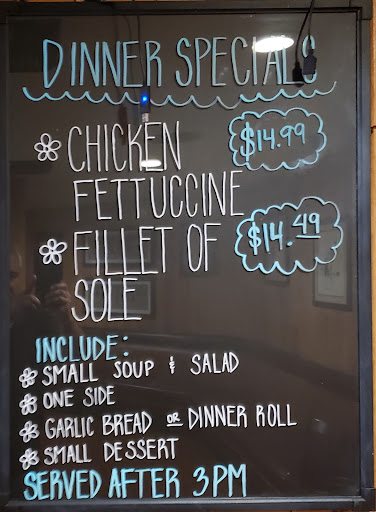 DINNER SPECIALS
CHICKEN $14.99
FETTUCCINE
FILLET OF $14.49
SOLE
INCLUDE:
SMALL SOUP & SALAD
ONE SIDE
GARLIC BREAD OR DINNER ROLL
SMALL DESSERT
SERVED AFTER 3PM